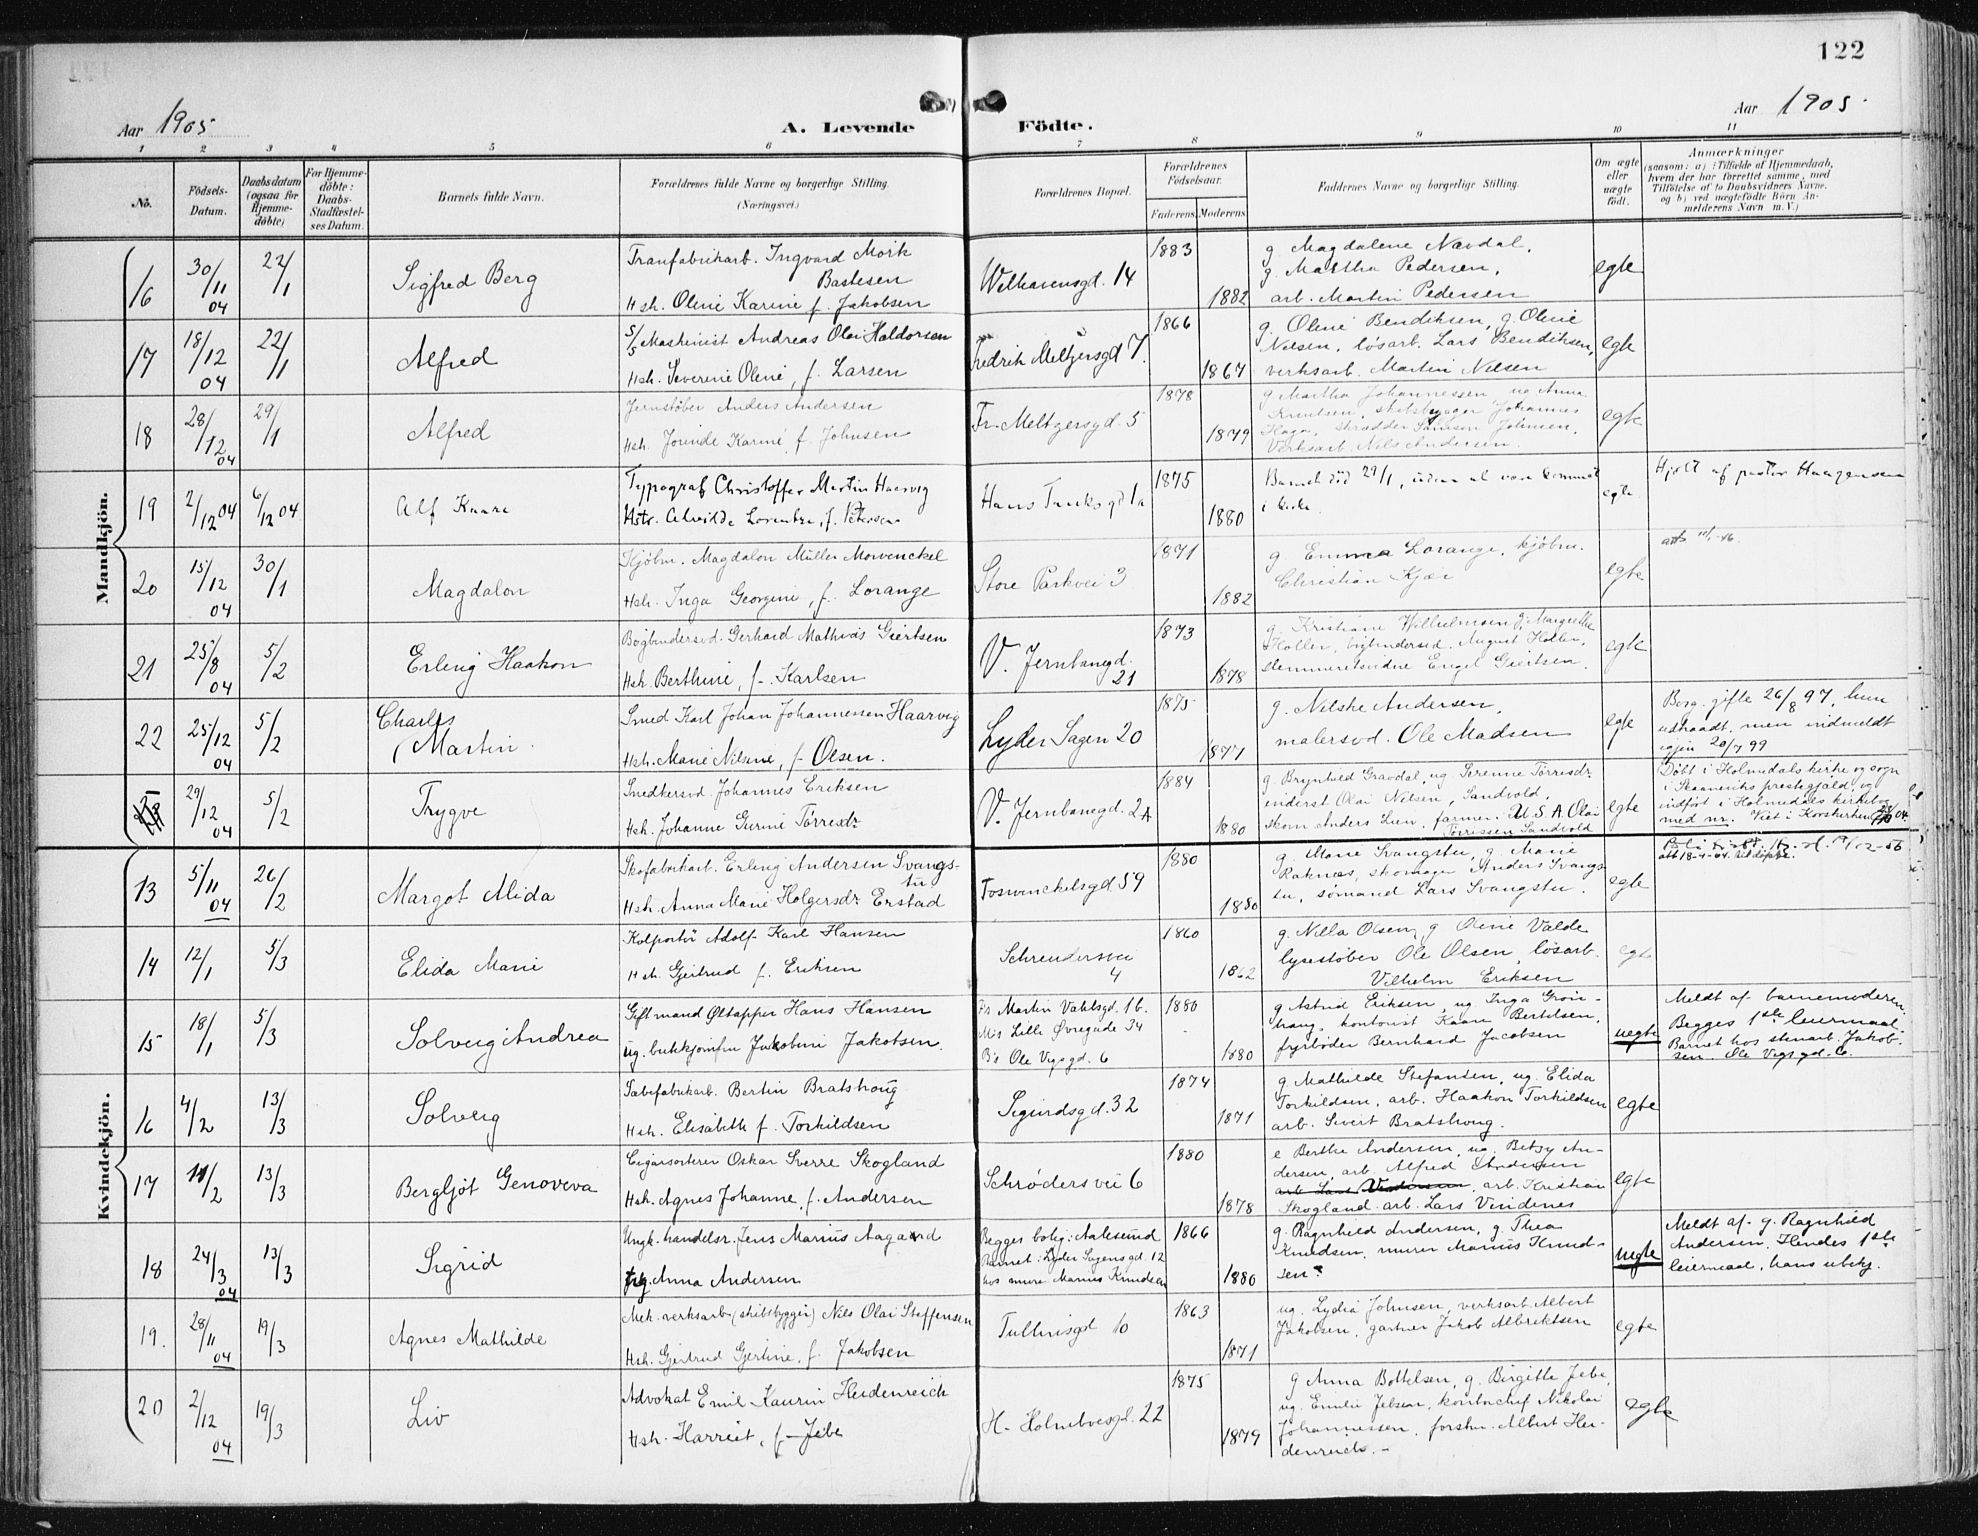 122
Aar 1905
A. Levende Födte.
Aar 1905.
1 2 3 4 5 6 7 8 9 10 11
No.
Födsels-Datum.
Daabsdatum (ogsaa for Hjemme-döbte)
For Hjemme-döbte: Daabs-Stadfæstel-ses Datum.
Barnets fulde Navn.
Forældrenes fulde Navne og borgerlige Stilling.
(Næringsvei.)
Forældrenes Bopæl.
Forældrenes Födselsaar.
Faderens Moderens
Faddernes Navne og borgerlige Stilling.
Om ægte eller uægte födt.
Anmærkninger
(saasom: a) i Tilfælde af Hjemmedaab,
hvem der har forrettet samme, med
Tilföielse af to Daabsvidners Navne,
og b) ved uægtefödte Börn An-
melderens Navn m. V.)
Mandkjön.
16 30/11 04 22/1 Sigfred Berg
Tranfabrikarb. Ingvard Mörk
Bastesen
Hsh. Oline Karine f. Jakobsen
Welhavensgd. 14
1883 1882
g. Magdalene Nævdal,
g. Martha Pedersen,
arb. Martin Pedersen
egte
17 18/12 04 22/1 Alfred
S/S Maskinist Andreas Olai Haldorsen
Hsh. Severine Oline, f. Larsen
Fredrik Meltzersgd 7.
1866 1867
g. Oline Bendiksen, g. Oline
Nilsen, lösarb. Lars Bendiksen,
verksarb. Martin Nilsen
egte
18 28/12 04 29/1 Alfred
Jernstöber Anders Andersen
Hsh. Karine f. Johnsen
Fr. Meltzersgd. 5
1878 1879
g Martha Johannessen, ug Anna
Knutsen, skibsbygger Johannes
Haga, skrædder Johnsen,
Verksarb. Nils Andersen.
egte
19 2/12 04 6/12 04 Alf Kaare
Typograf Christoffer Martin Haarvig
Hstr. Alvilde f. Petersen
Hans Tanksgd 1a
1875 1880
Barnet död 29/1, uden at være kommet
i kirke.
egte
Hjdt af pastor Haagensen
20 15/12 04 30/1 Magdalon
Kjöbm. Magdalon Müller Mowinckel
Hsh. Inga Georgine, f. Lorange
Store Parkvei 3
1871 1882
g. Emma Lorange, kjöbm.
Christian Kjær
egte
21 25/8 04 5/2 Erling Haakon
Bogbindersvd. Gerhard Mathias Giertsen
Hsh. Berthine, f. Karlsen
V. Jernbanegd.
21
1873 1878
g. Kristiane Wilhelmsen g. Margrethe
Holler, bogbindersvd. August Holler,
stemmeretsvidne Engel Giertsen.
egte
22 25/12 04 5/2 Charles
Martin.
Smed Karl Johan Johannessen Haarvig
Hsh. Marie Nilsine, f. Olsen.
Lyder Sagen 20
1875 1877
g. Nilske Andersen,
malersvd. Ole Madsen
egte
Borg. gifte 26/8 97, hun
udtraadt, men indmeldt
igjen 20/7 99
29/12 04 5/2 Trygve
Snedkersvd. Johannes Eriksen
Hsh. Johanne Gurine Törresdr
V. Jernbanegd. 2A
1884 1880
g. Brynhild Gravdal, ug Serenne Törresdr
inderst Olai Nilsen, Sandvold,
skom Anders Lien, farmer i U.S.A. Olai
Törrissen Sandvold
egte
Döbt i Holmedals kirke og sogn
i Skaaneviks prestegjæld, og
indföst i Holmedals kirkebog
med nr. Viet i Korskirken 04.
Kvindekjön.
13 5/11 04 26/2 Margot Alida
Skofabrikarb. Erling Andersen Svangs-
tu
Hsh. Anna Marie Holgersdr Erstad
1880 1880
g. Marie Svangstu, g. Marie
Raknæs, skomager Anders Svangs-
tu, sömand Lars Svangstu.
egte
14 12/1 5/3 Elida Marie
Kolportör Adolf Karl Hansen
Hsh. Gjertrud f. Eriksen
4
1860 1862
g. Nilla Olsen, g Oline Valde
lysestöber Ole Olsen, lösarb.
Vilhelm Eriksen
egte
15 18/1 5/3 Solveig Andrea
Gift mand Öltapper Hans Hansen
ug. butikjomfru Jakobine Jakobsen.
Fs Martin Vahlsgd. 1b.
Ms Lille Övregade 34
Bs Ole Vigsgd. 6
1880 1880
g Astrid Eriksen, ug. Inga Grön-
haug, kontorist Kaare Bertelsen,
fyrböder Bernhard Jacobsen
uegte
Meldt af barnemoderen.
Begges 1ste leiermaal.
Barnet hos stenarb. Jakob-
sen. Ole Vigs gd. 6.
16 4/2 13/3 Solveig
Sæbefabrikarb. Bertin Bratshoug
Hsh. Elisabeth f. Torkildsen
Sigurdsgd. 32
1874 1871
g. Mathilde Stefansen, ug. Elida
Torkildsen, arb. Haakon Torkildsen
arb. Sivert Bratshoug.
egte
17 11/2 13/3 Bergljót Genoveva
Cigarsorterer Oskar Sverre Skogland
Hsh. Agnes Johanne, f. Andersen
Schrödersvei 6
1880 1878
e Berthe Andersen, ug. Betsy An-
dersen, arb. Alfred Andersen
arb. Kristian
Skogland arb. Lars Vindenes
egte
18 24/3 04 13/3 Sigrid
Ungk. handelsr. Jens Marius Aagaard
Pig. Anna Andersen
Begges bolig: Aalesund
Barnet: Lyder Sagensgd. 12
hos murer Marius Knudsen
1866 1880
g. Ragnhild Andersen, g. Thea
Knudsen, murer Marius Knud-
sen.
uegte
Meldt af g. Ragnhild
Andersen. Hendes 1ste
leiermaal, hans ubekj.
19. 28/11 04 19/3 Agnes Mathilde
Mek. verksarb (skibsbygger) Nils Olai Steffensen
Hsh. Gjertrud Gjertine, f. Jakobsen
Tullinsgd 10
1863 1871
ug. Lydia Johnsen, verksarb. Albert
Jakobsen, gartner Jakob Albriktsen
egte
20 2/12 04 19/3 Liv
Advokat Emil Kaurin Heidenreich
Hsh. Harriet, f. Jebe
H. Holmboesgd. 22
1875 1879
g Anna Bottelsen, g. Birgitte Jebe,
ug. Emilie Jebsen, kontorchef Nikolai
Johannessen, forstm. Albert Hei-
denreich. -
egte